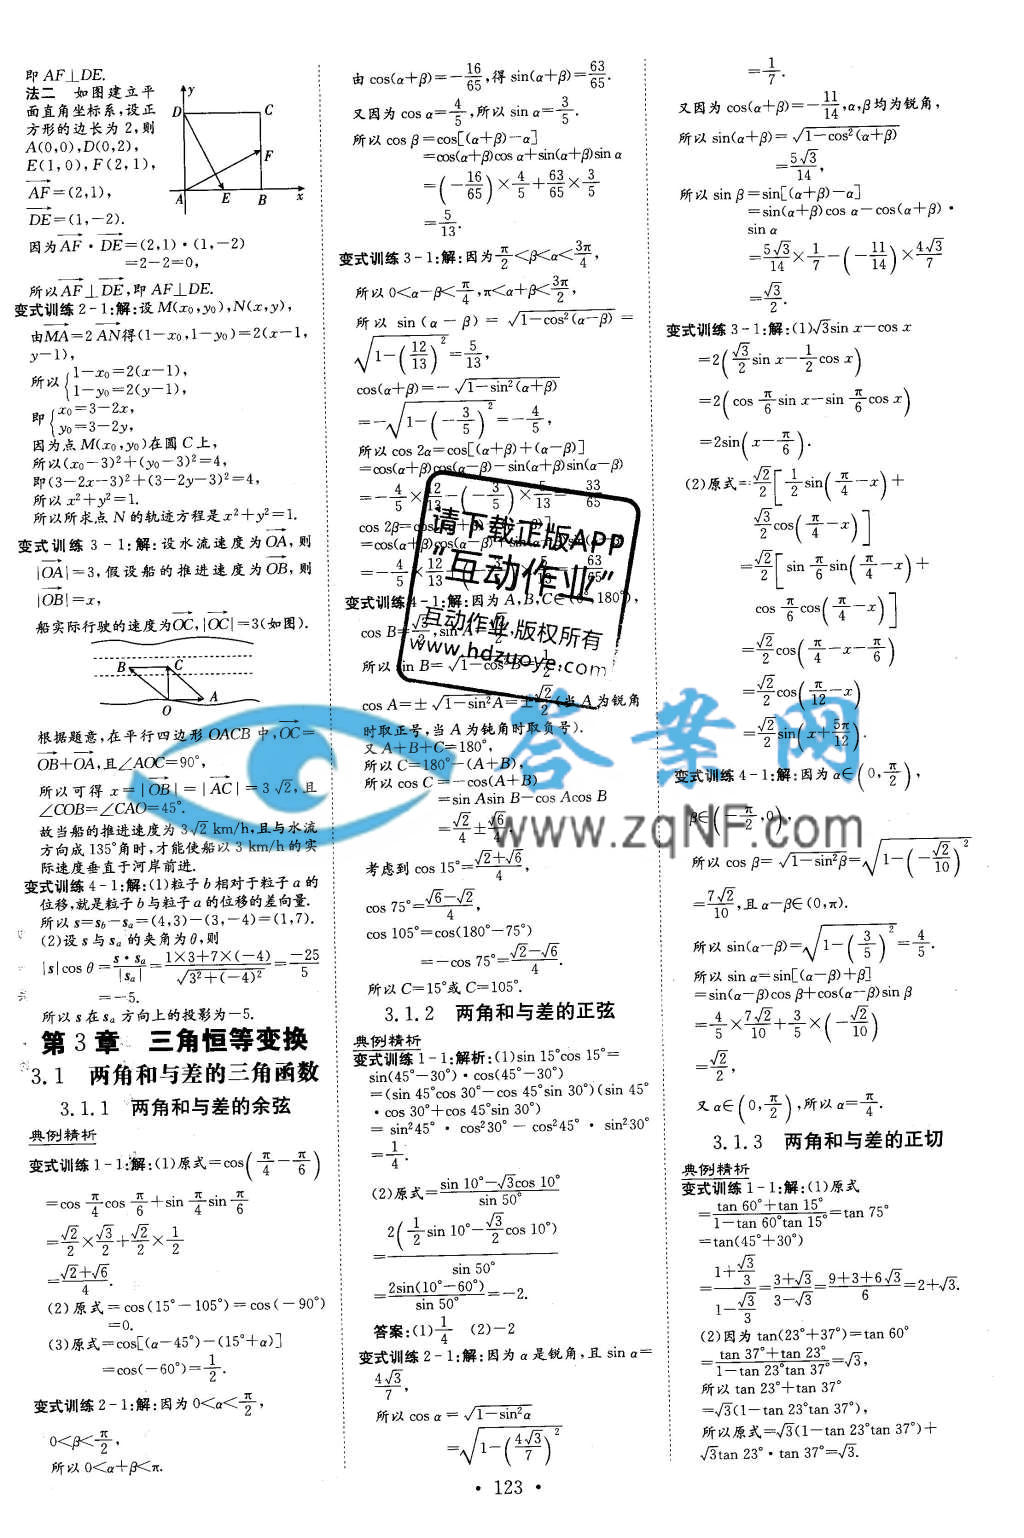 即 AF⊥DE.
法二 如图建立平
面直角坐标系,设正
方形的边长为 2,则
A(0,0),D(0,2),
E(1,0),F(2,1),
AF=(2,1),
DE=(1,-2).
y
D
C
F
A
E
B
x
因为AF·DE=(2,1)·(1,-2)
=2-2=0,
所以AF⊥DE,即 AF⊥DE.
变式训练 2-1:解:设 M(x₀,y₀),N(x,y),
由MA=2 AN得(1-x₀,1-y₀)=2(x-1,
y-1),
所以{1-x₀=2(x-1),
1-y₀=2(y-1),
即{x₀=3-2x,
y₀=3-2y,
因为点 M(x₀,y₀)在圆 C 上,
所以(x₀-3)²+(y₀-3)²=4,
即(3-2x-3)²+(3-2y-3)²=4,
所以 x²+y²=1.
所以所求点 N 的轨迹方程是 x²+y²=1.
变式训练 3-1:解:设水流速度为OA,则
|OA|=3,假设船的推进速度为OB,则
|OB|=x,
船实际行驶的速度为OC,|OC|=3(如图).
B
C
A
O
根据题意,在平行四边形 OACB 中,OC=
OB+OA,且∠AOC=90°,
所以可得 x=|OB|=|AC|=3√2,且
∠COB=∠CAO=45°.
故当船的推进速度为 3√2 km/h,且与水流
方向成 135°角时,才能使船以 3 km/h 的实
际速度垂直于河岸前进.
变式训练 4-1:解:(1)粒子 b 相对于粒子 a 的
位移,就是粒子 b 与粒子 a 的位移的差向量.
所以 s=s_b-s_a=(4,3)-(3,-4)=(1,7).
(2)设 s 与 s_a 的夹角为 θ,则
|s|cos θ=s·s_a/|s_a|=(1×3+7×(-4))/√(3²+(-4)²)=-25/5
=-5.
所以 s 在 s_a 方向上的投影为-5.
第 3 章 三角恒等变换
3.1 两角和与差的三角函数
3.1.1 两角和与差的余弦
典例精析
变式训练 1-1:解:(1)原式=cos(π/4-π/6)
=cos π/4 cos π/6+sin π/4 sin π/6
=√2/2×√3/2+√2/2×1/2
=(√2+√6)/4.
(2)原式=cos(15°-105°)=cos(-90°)
=0.
(3)原式=cos[(α-45°)-(15°+α)]
=cos(-60°)=1/2.
变式训练 2-1:解:因为 0<α<π/2,
0<β<π/2,
所以 0<α+β<π.
由 cos(α+β)=-16/65,得 sin(α+β)=63/65.
又因为 cos α=4/5,所以 sin α=3/5.
所以 cos β=cos[(α+β)-α]
=cos(α+β)cos α+sin(α+β)sin α
=(-16/65)×4/5+63/65×3/5
=5/13.
变式训练 3-1:解:因为π/2<β<α<3π/4,
所以 0<α-β<π/4,π<α+β<3π/2,
所以 sin(α-β)=√(1-cos²(α-β))=
√(1-(12/13)²)=5/13,
cos(α+β)=-√(1-sin²(α+β))
=-√(1-(-3/5)²)=-4/5,
所以 cos 2α=cos[(α+β)+(α-β)]
=cos(α+β)cos(α-β)-sin(α+β)sin(α-β)
=-4/5×12/13-(-3/5)×5/13=-33/65
cos 2β=
=cos(α+β)cos(α-β)+
=-4/5×12/13+ 5/13=-63/65
变式训练 4-1:解:因为 A,B,C∈(0°,180°),
cos B=√3/2,sin A=√2/2,
所以 sin B=√(1-cos²B)=1/2,
cos A=±√(1-sin²A)=±√2/2(当 A 为锐角
时取正号,当 A 为钝角时取负号).
又 A+B+C=180°,
所以 C=180°-(A+B),
所以 cos C=-cos(A+B)
=sin Asin B-cos Acos B
=√2/4±√6/4.
考虑到 cos 15°=(√2+√6)/4,
cos 75°=(√6-√2)/4,
cos 105°=cos(180°-75°)
=-cos 75°=(√2-√6)/4.
所以 C=15°或 C=105°.
3.1.2 两角和与差的正弦
典例精析
变式训练 1-1:解析:(1)sin 15°cos 15°=
sin(45°-30°)·cos(45°-30°)
=(sin 45°cos 30°-cos 45°sin 30°)(sin 45°
·cos 30°+cos 45°sin 30°)
=sin²45°·cos²30°-cos²45°·sin²30°
=1/4.
(2)原式=(sin 10°-√3cos 10°)/sin 50°
=2(1/2 sin 10°-√3/2 cos 10°)/sin 50°
=2sin(10°-60°)/sin 50°=-2.
答案:(1)1/4 (2)-2
变式训练 2-1:解:因为 α 是锐角,且 sin α=
4√3/7,
所以 cos α=√(1-sin²α)
=√(1-(4√3/7)²)
=1/7.
又因为 cos(α+β)=-11/14,α,β均为锐角,
所以 sin(α+β)=√(1-cos²(α+β))
=5√3/14,
所以 sin β=sin[(α+β)-α]
=sin(α+β)cos α-cos(α+β)·
sin α
=5√3/14×1/7-(-11/14)×4√3/7
=√3/2.
变式训练 3-1:解:(1)√3sin x-cos x
=2(√3/2 sin x-1/2 cos x)
=2(cos π/6 sin x-sin π/6 cos x)
=2sin(x-π/6).
(2)原式=√2/2[1/2 sin(π/4-x)+
√3/2 cos(π/4-x)]
=√2/2[sin π/6 sin(π/4-x)+
cos π/6 cos(π/4-x)]
=√2/2 cos(π/4-x-π/6)
=√2/2 cos(π/12-x)
=√2/2 sin(x+5π/12).
变式训练 4-1:解:因为 α∈(0,π/2),
β∈(-π/2,0),
所以 cos β=√(1-sin²β)=√(1-(-√2/10)²)
=7√2/10,且 α-β∈(0,π).
所以 sin(α-β)=√(1-(3/5)²)=4/5.
所以 sin α=sin[(α-β)+β]
=sin(α-β)cos β+cos(α-β)sin β
=4/5×7√2/10+3/5×(-√2/10)
=√2/2,
又 α∈(0,π/2),所以 α=π/4.
3.1.3 两角和与差的正切
典例精析
变式训练 1-1:解:(1)原式
=(tan 60°+tan 15°)/(1-tan 60°tan 15°)=tan 75°
=tan(45°+30°)
=(1+√3/3)/(1-√3/3)=(3+√3)/(3-√3)=(9+3+6√3)/6=2+√3.
(2)因为 tan(23°+37°)=tan 60°
=(tan 37°+tan 23°)/(1-tan 23°tan 37°)=√3,
所以 tan 23°+tan 37°
=√3(1-tan 23°tan 37°),
所以原式=√3(1-tan 23°tan 37°)+
√3tan 23°·tan 37°=√3.
请下载正版APP
"互动作业"
互动作业,版权所有
www.hdzuoye.com
答案网
www.zqNF.com
· 123 ·